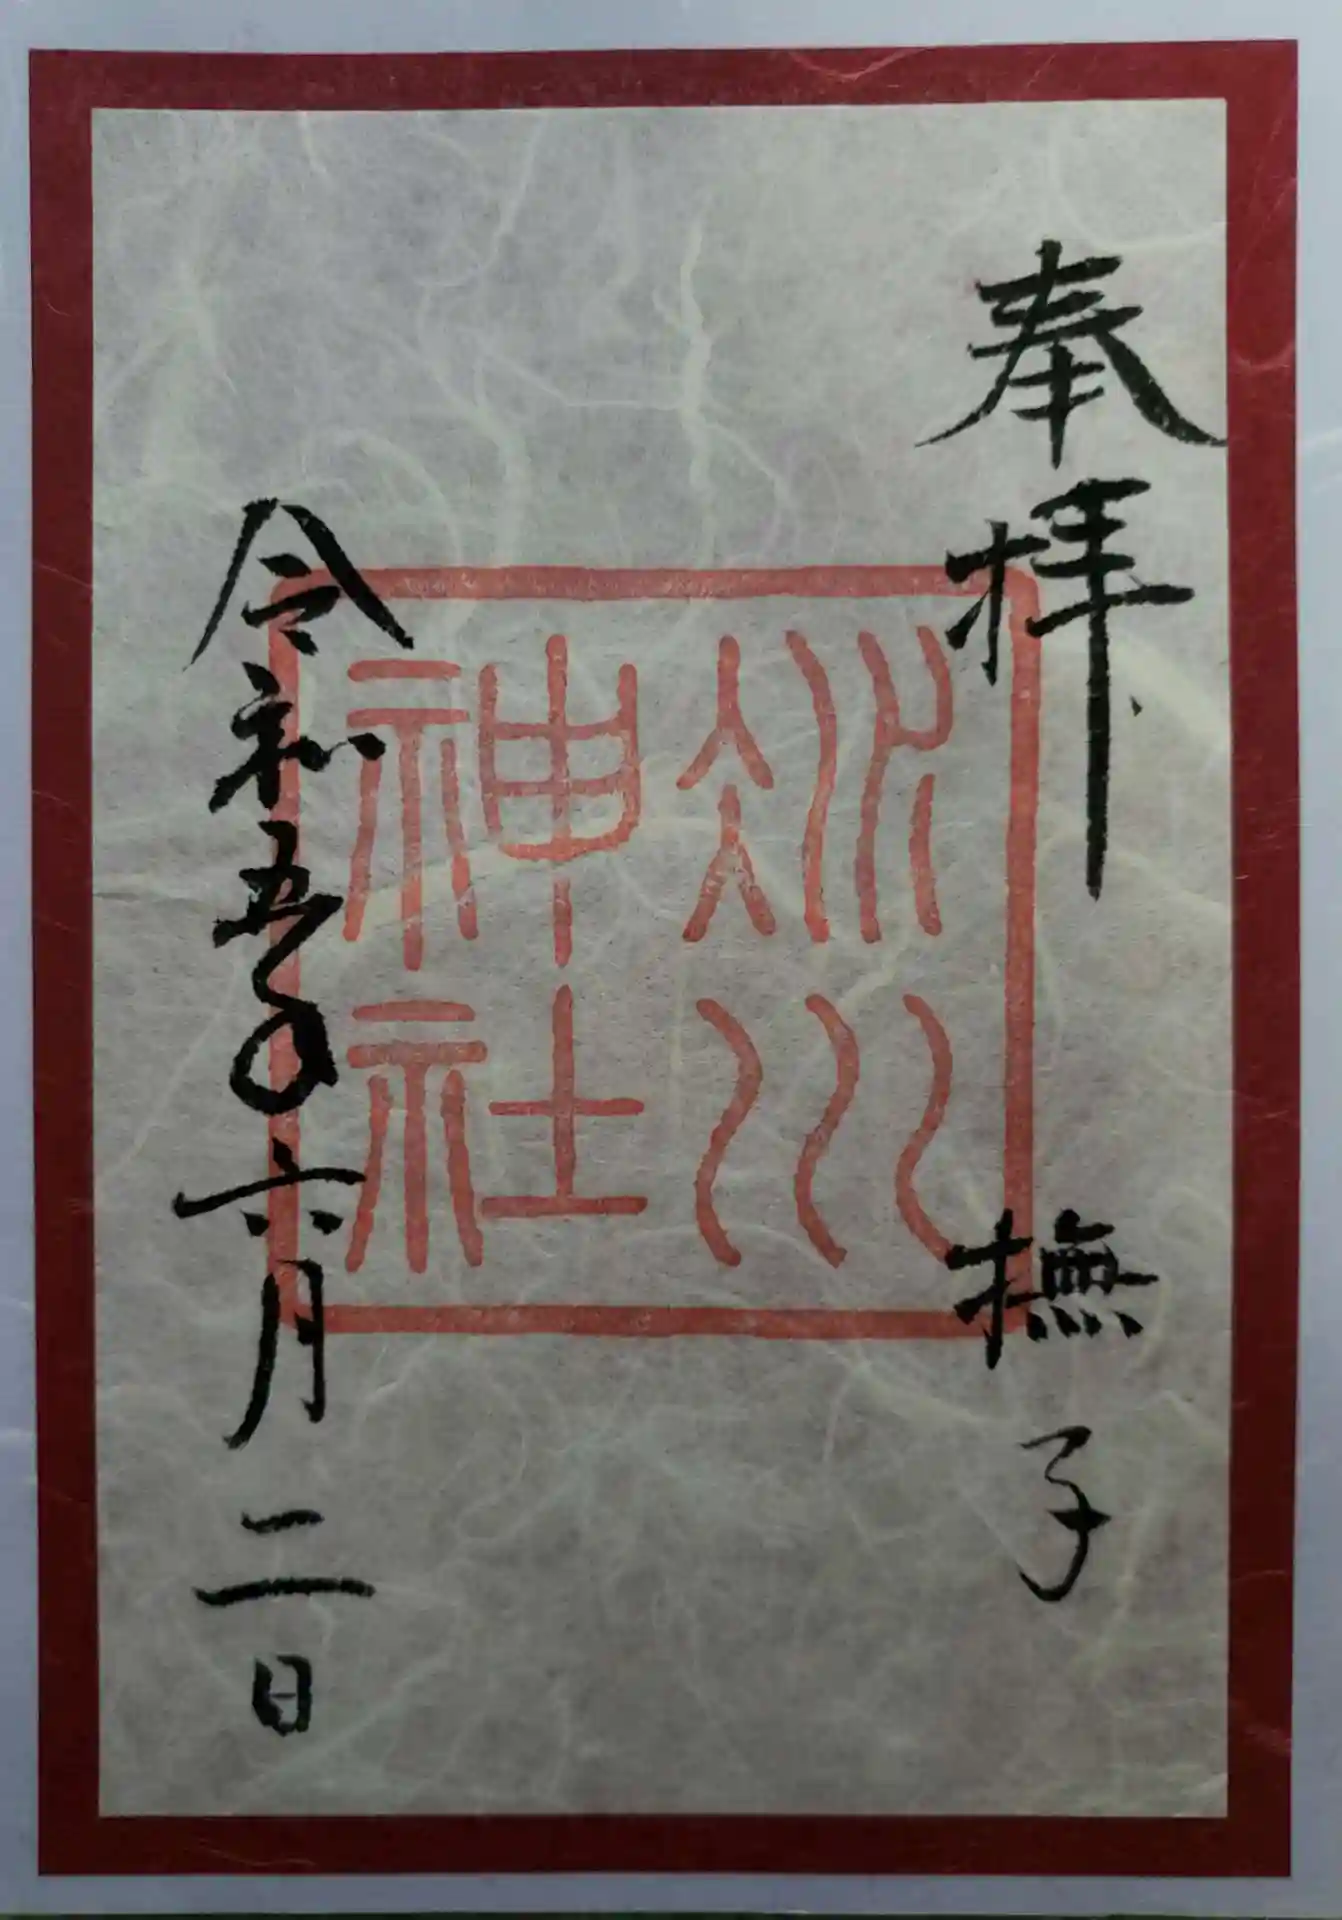 奉拝 撫子
冰川
神社
令和五年六月二日